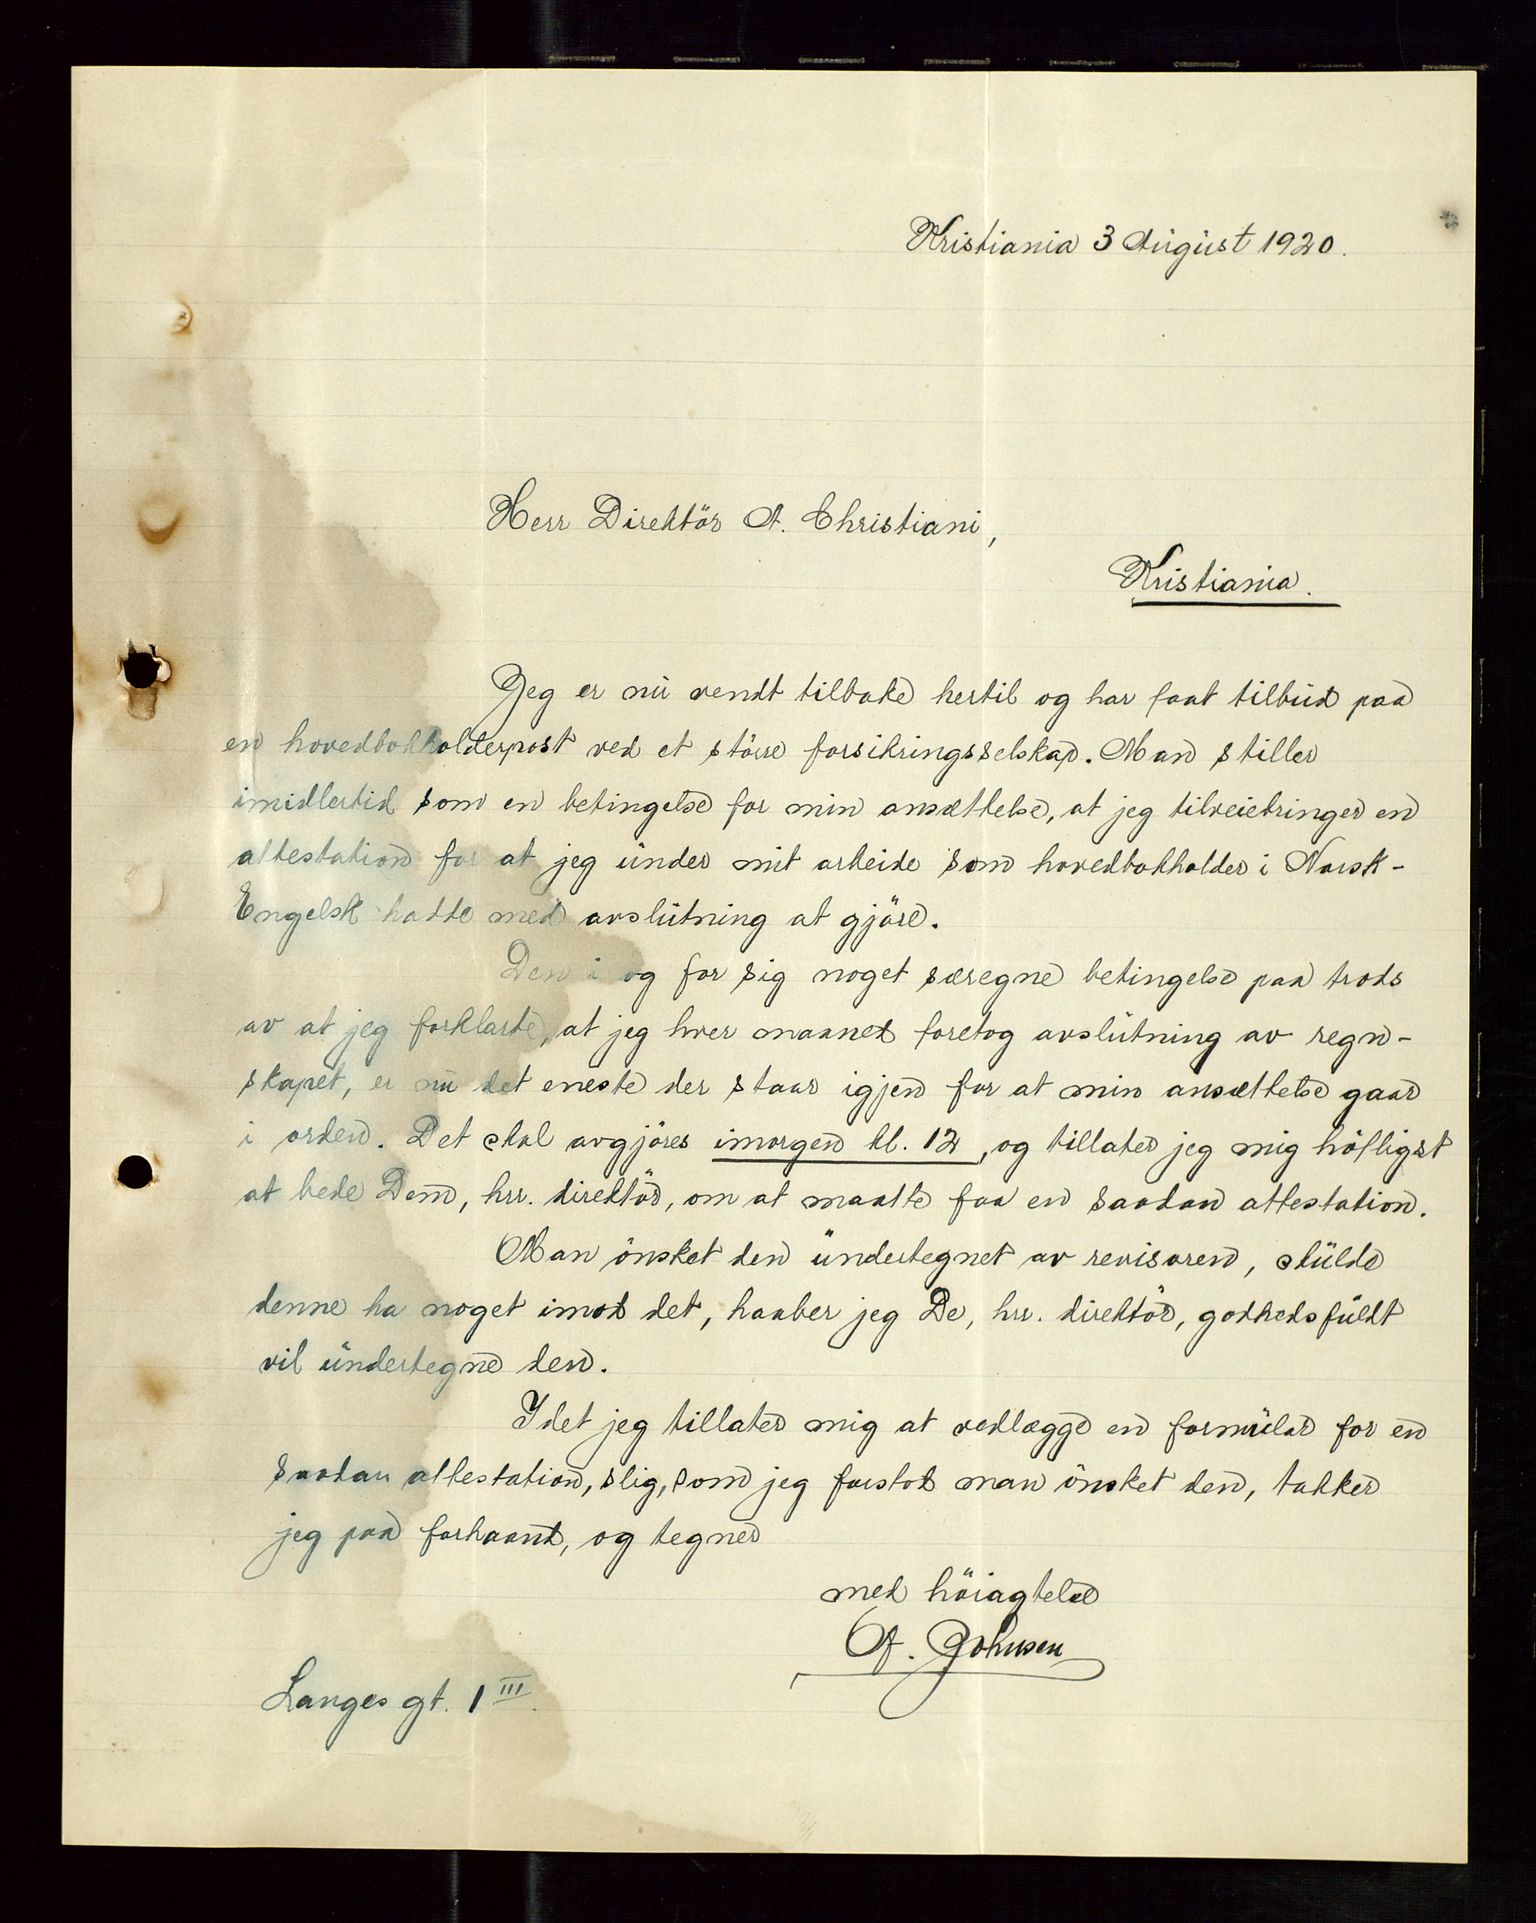 Kristiania 3 August 1920.
Herr Direktör A. Christiani,
Kristiania.
Jeg er nu vendt tilbake hertil og har faat tilbud paa
en hovedbokholderpost ved et större forsikringsselskap. Man stiller
imidlertid som en betingelse for min ansættelse, at jeg tilveiebringer en
attestation for at jeg under mit arbeide som hovedbokholder i Norsk-
Engelsk hadde med avslutning at gjöre.
Den i og for sig noget særegne betingelse paa trods
av at jeg forklarte, at jeg hver maaned foretog avslutning av regn-
skapet, er nu det eneste der staar igjen for at min ansættelse gaar
i orden. Det skal avgjöres imorgen kl. 12, og tillater jeg mig höfligst
at bede Dem, hrr. direktör, om at maatte faa en saadan attestation.
Man önsket den undertegnet av revisoren, skulde
denne ha noget imod det, haaber jeg De, hrr. direktör, godhedsfuldt
vil undertegne den.
Idet jeg tillater mig at vedlægge en formular for en
saadan attestation, slig, som jeg forstod man önsket den, takker
jeg paa forhaand, og tegner
med höiagtelse
A. Johnsen
Langes gt. 1 III.